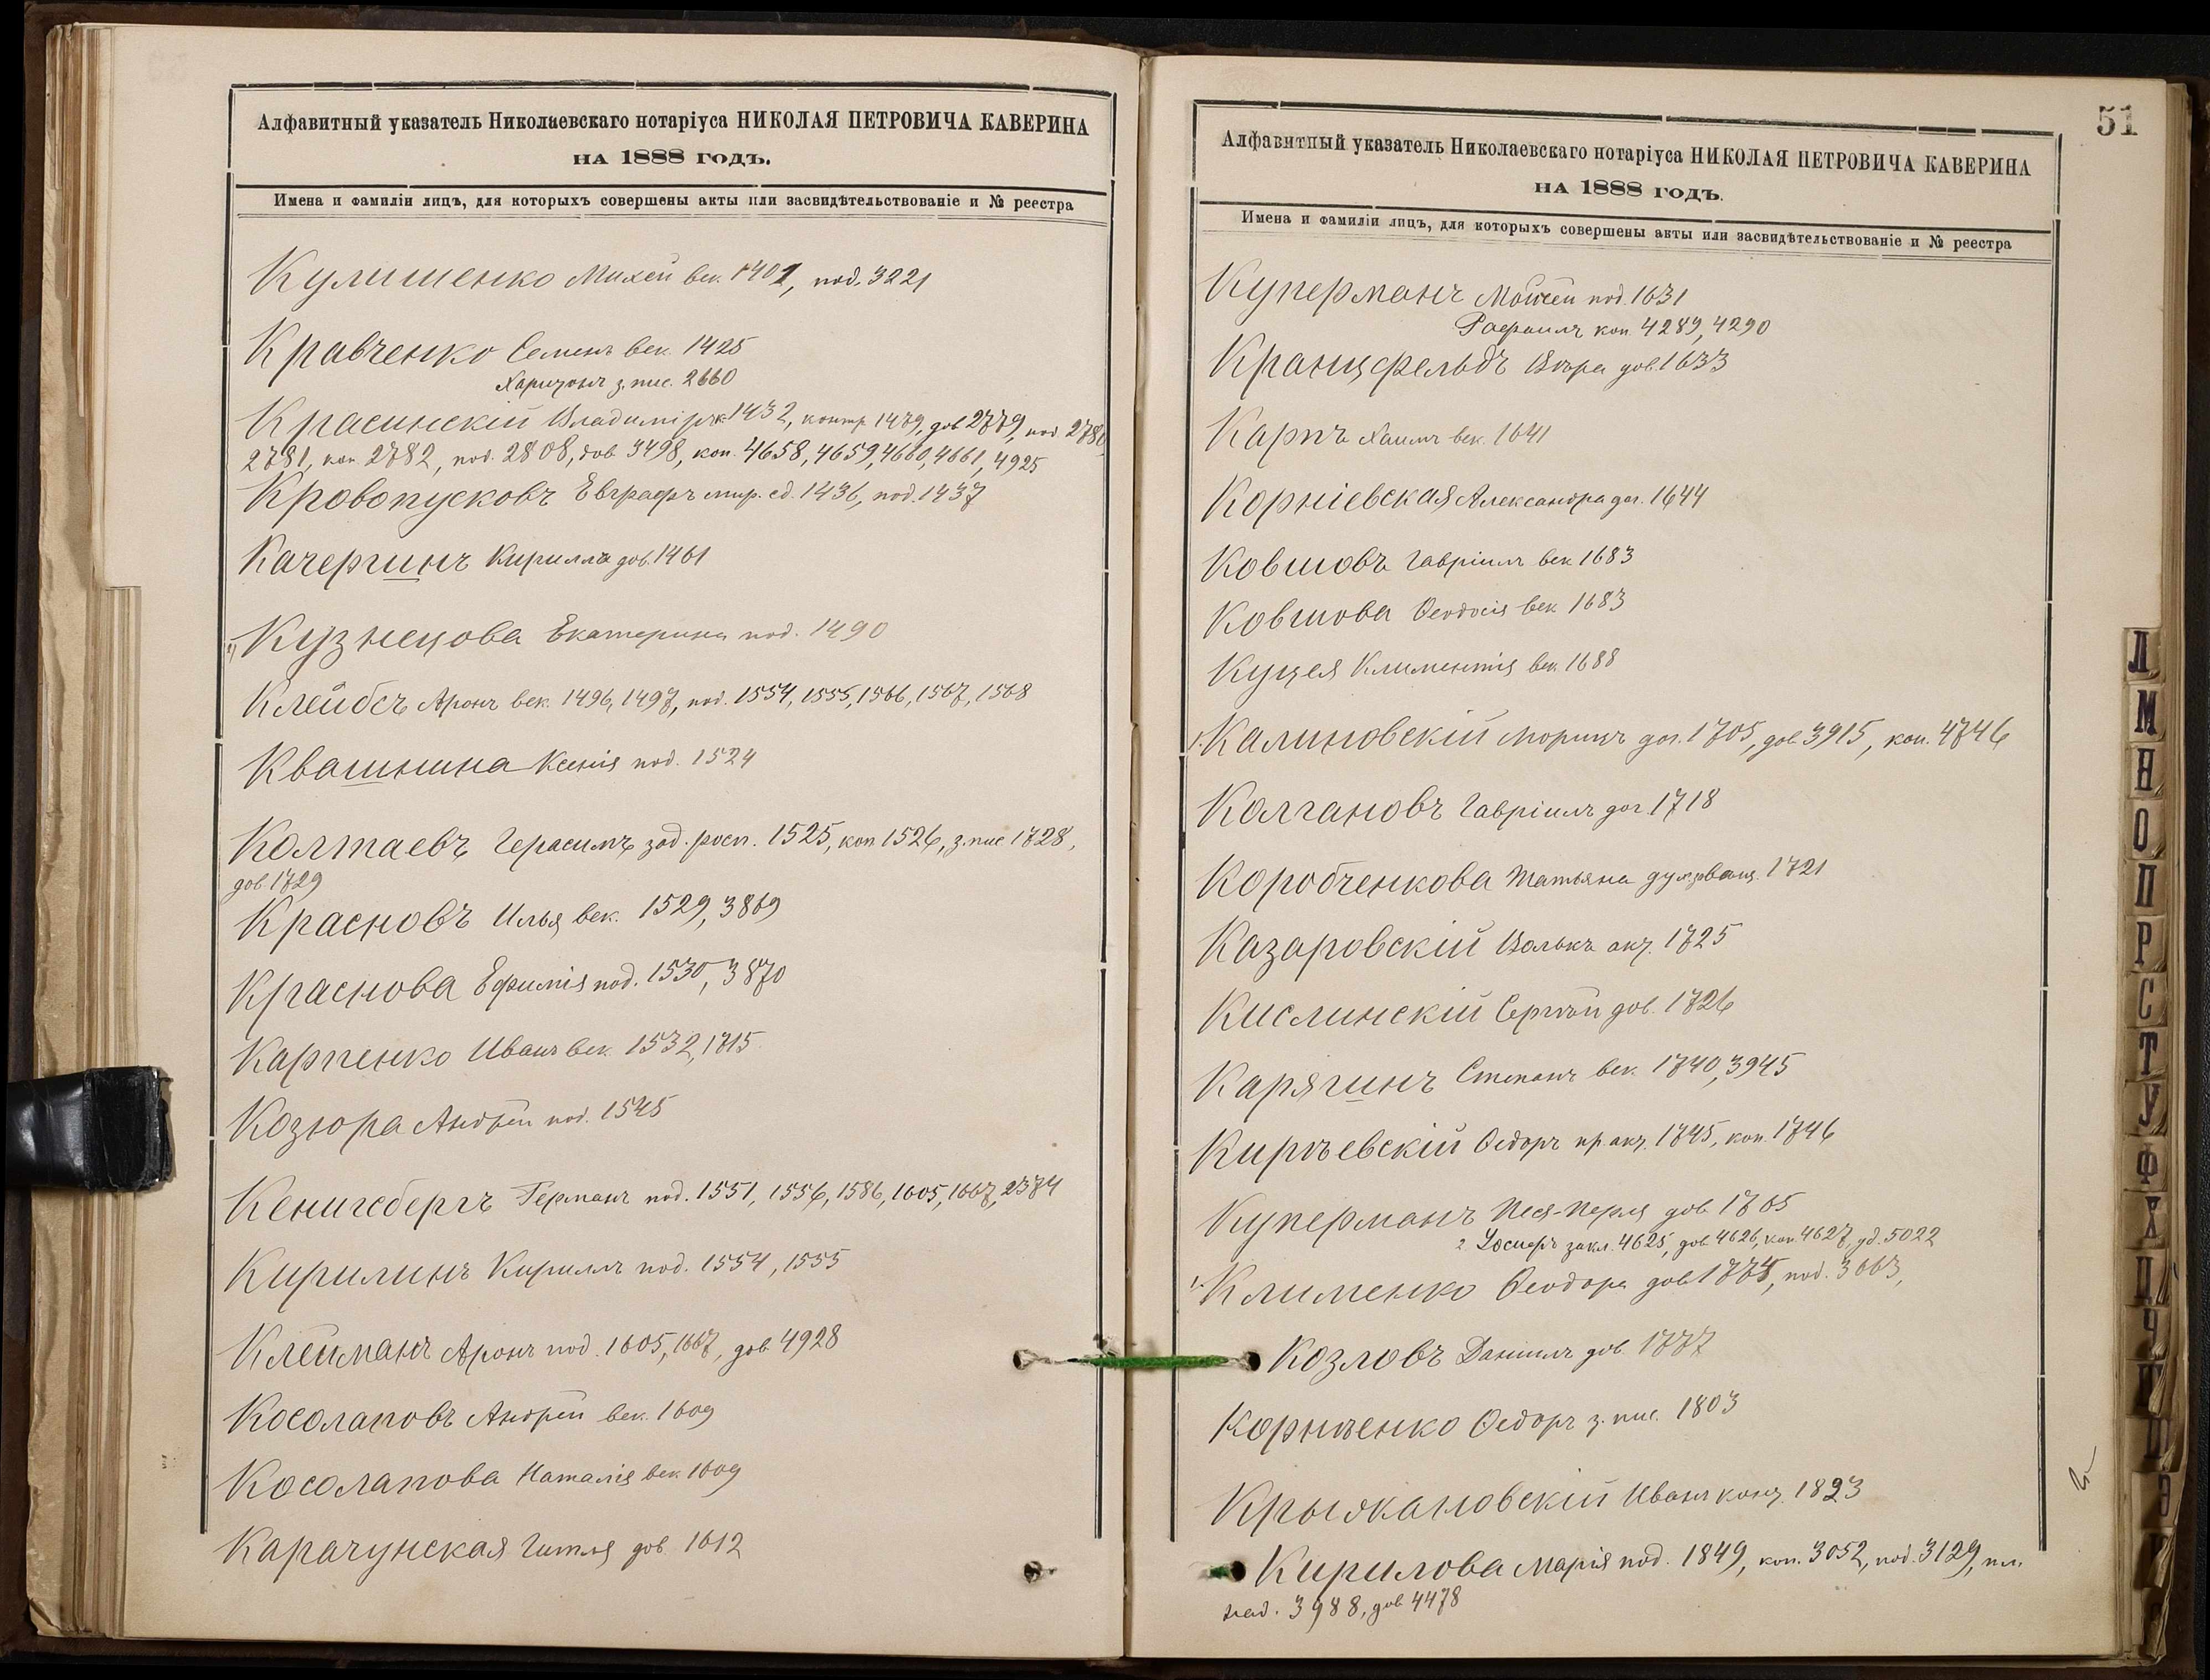 Алфавитный указатель Николаевскаго нотаріуса НИКОЛАЯ ПЕТРОВИЧА КАВЕРИНА
НА 1888 ГОДЪ.
Имена и фамиліи лицъ, для которыхъ совершены акты или засвидѣтельствованіе и № реестра
Кулишенко Михей век. 1401, под. 3221
Кравченко Семенъ век. 1425
Харитонъ з. пис. 2660
Красинскій Владиміръ 1432, контр. 1479, дов. 2779, под. 2780,
2781, коп. 2782, под. 2808, дов. 3498, коп. 4658, 4659, 4660, 4661, 4925
Кровопусковъ Евграфъ мир. сд. 1436, под. 1437
Качергинъ Кирилла дов. 1461
Кузнецова Екатерина под. 1490
Клейбсъ Аронъ век. 1496, 1497, под. 1554, 1555, 1566, 1567, 1568
Квашнина Ксенія под. 1524
Колтаевъ Герасимъ зад. росп. 1525, коп. 1526, з. пис. 1728,
дов. 1729
Красновъ Илья век. 1529, 3869
Краснова Ефимія под. 1530, 3870
Карпенко Иванъ век. 1532, 1715
Козюра Андрей под. 1545
Кенигсбергъ Германъ под. 1551, 1556, 1586, 1605, 1667, 2374
Кирилинъ Кириллъ под. 1554, 1555
Клейманъ Аронъ под. 1605, 1667, дов. 4928
Косолаповъ Андрей век. 1609
Косолапова Наталія век. 1609
Карачунская Гитля дов. 1612
51
Алфавитный указатель Николаевскаго нотаріуса НИКОЛАЯ ПЕТРОВИЧА КАВЕРИНА
НА 1888 ГОДЪ.
Имена и фамиліи лицъ, для которыхъ совершены акты или засвидѣтельствованіе и № реестра
Куперманъ Мойсей под. 1631
Рафаилъ коп. 4289, 4290
Кранцфельдъ Вѣра дов. 1633
Карпъ Хаимъ век. 1641
Корніевская Александра дог. 1644
Ковшовъ Гавріилъ век. 1683
Ковшова Ѳеодосія век. 1683
Куцея Климентія век. 1688
1. Калиновскій Морицъ дог. 1705, дов. 3915, коп. 4746
Колгановъ Гавріилъ дог. 1718
Коробченкова Татьяна 1721
Казаровскій Волькъ акц. 1725
Кислинскій Сергѣй дов. 1726
Карягинъ Степанъ век. 1740, 3945
Кирѣевскій Ѳедоръ пр. акц. 1745, коп. 1746
Куперманъ Песя-Перля дов. 1765
2 Іосифъ закл. 4625, дов. 4626, коп. 4627, уд. 5022
1. Клименко Ѳеодора дов. 1774, под. 3663,
Козловъ Даніилъ дов. 1777
Корнѣенко Ѳедоръ з. пис. 1803
Крыжановскій Иванъ конц. 1823
Кирилова Марія под. 1849, коп. 3052, под. 3129, пл.
над. 3988, дов. 4478
Л
М
Н
О
П
Р
С
Т
У
Ф
Х
Ц
Ч
Ш